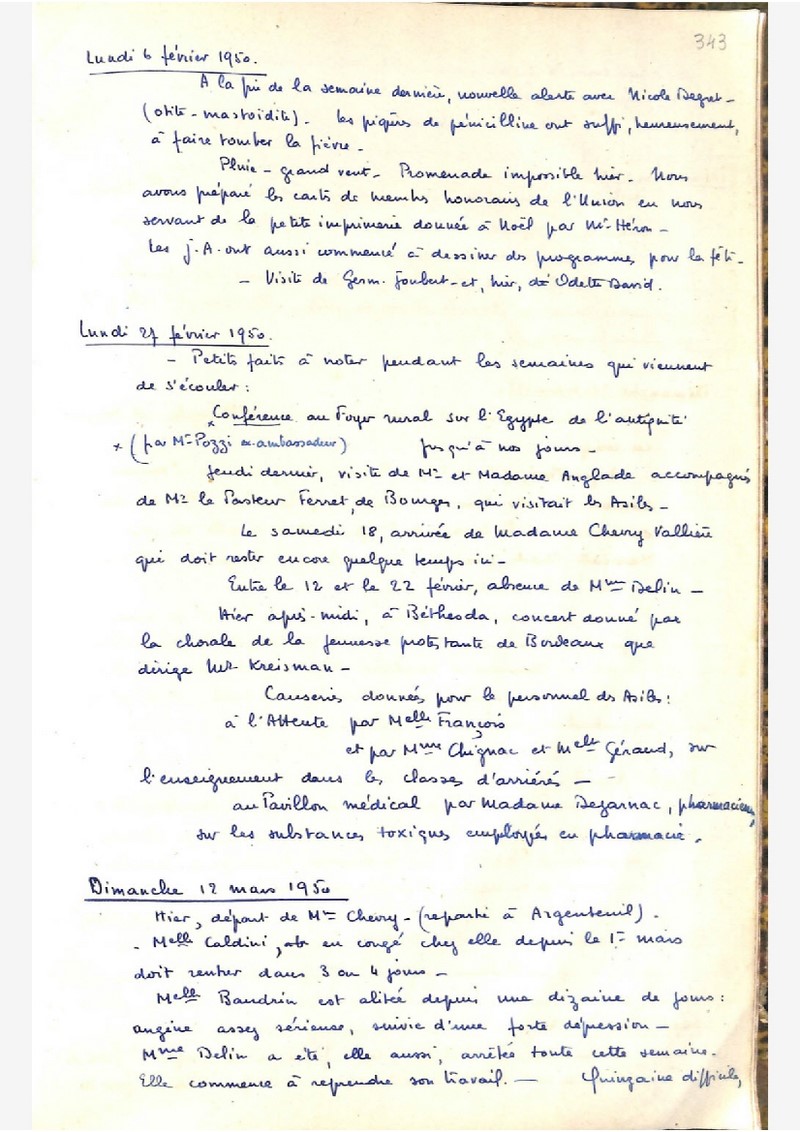 343
Lundi 6 février 1950.
A la fin de la semaine dernière, nouvelle alerte avec Nicole Degret -
(otite - mastoïdite). Les piqûres de pénicilline ont suffi, heureusement,
à faire tomber la fièvre -
Pluie - grand vent - Promenade impossible hier - Nous
avons préparé les cartes de membres honoraires de l'Union en nous
servant de la petite imprimerie donnée à Noël par Mr Héron -
Les J.A. ont aussi commencé à dessiner des programmes pour la fête -
- Visite de Germ. Joubert - et, hier, de Odette David.
Lundi 27 février 1950.
- Petits faits à noter pendant les semaines qui viennent
de s'écouler :
x Conférence au Foyer rural sur l'Egypte de l'antiquité
x (par Mr Pozzi ex. ambassadeur) jusqu'à nos jours -
Jeudi dernier, visite de Mr et Madame Anglade accompagnés
de Mr le Pasteur Ferret, de Bourges, qui visitait les Asiles -
Le samedi 18, arrivée de Madame Chevry Vallière
qui doit rester encore quelque temps ici -
Entre le 12 et le 22 février, absence de Mme Delin -
Hier après-midi, à Béthesda, concert donné par
la chorale de la jeunesse protestante de Bordeaux que
dirige Mr Kreisman -
Causeries données pour le personnel des Asiles :
à l'Attente par Melle François
et par Mme Chignac et Melle Géraud, sur
l'enseignement dans les classes d'arriérés -
au Pavillon médical par Madame Dezarnac, pharmacienne,
sur les substances toxiques employées en pharmacie.
Dimanche 12 mars 1950
Hier, départ de Me Chevry - (repartie à Argenteuil).
- Melle Caldini, en congé chez elle depuis le 1er mars
doit rentrer dans 3 ou 4 jours -
Melle Baudrin est alitée depuis une dizaine de jours :
angine assez sérieuse, suivie d'une forte dépression -
Mme Delin a été, elle aussi, arrêtée toute cette semaine.
Elle commence à reprendre son travail. - Quinzaine difficile,